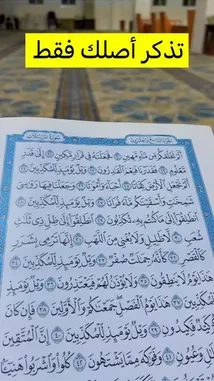 تذكر أصلك فقط
أَلَمْ نَخْلُقكُّم مِّن مَّآءٍ مَّهِينٍ ٢٠ فَجَعَلْنَٰهُ فِى قَرَارٍ مَّكِينٍ ٢١ إِلَىٰ قَدَرٍ
مَّعْلُومٍ ٢٢ فَقَدَرْنَا فَنِعْمَ ٱلْقَٰدِرُونَ ٢٣ وَيْلٌ يَوْمَئِذٍ لِّلْمُكَذِّبِينَ ٢٤
أَلَمْ نَجْعَلِ ٱلْأَرْضَ كِفَاتًا ٢٥ أَحْيَآءً وَأَمْوَٰتًا ٢٦ وَجَعَلْنَا فِيهَا رَوَٰسِىَ
شَٰمِخَٰتٍ وَأَسْقَيْنَٰكُم مَّآءً فُرَاتًا ٢٧ وَيْلٌ يَوْمَئِذٍ لِّلْمُكَذِّبِينَ ٢٨
ٱنطَلِقُوٓا۟ إِلَىٰ مَا كُنتُم بِهِۦ تُكَذِّبُونَ ٢٩ ٱنطَلِقُوٓا۟ إِلَىٰ ظِلٍّ ذِى ثَلَٰثِ
شُعَبٍ ٣٠ لَّا ظَلِيلٍ وَلَا يُغْنِى مِنَ ٱللَّهَبِ ٣١ إِنَّهَا تَرْمِى بِشَرَرٍ
كَٱلْقَصْرِ ٣٢ كَأَنَّهُۥ جِمَٰلَتٌ صُفْرٌ ٣٣ وَيْلٌ يَوْمَئِذٍ لِّلْمُكَذِّبِينَ ٣٤
هَٰذَا يَوْمُ لَا يَنطِقُونَ ٣٥ وَلَا يُؤْذَنُ لَهُمْ فَيَعْتَذِرُونَ ٣٦ وَيْلٌ يَوْمَئِذٍ لِّلْمُكَذِّبِينَ ٣٧
هَٰذَا يَوْمُ ٱلْفَصْلِ جَمَعْنَٰكُمْ وَٱلْأَوَّلِينَ ٣٨ فَإِن كَانَ
كَيْدٌ فَكِيدُونِ ٣٩ وَيْلٌ يَوْمَئِذٍ لِّلْمُكَذِّبِينَ ٤٠ إِنَّ ٱلْمُتَّقِينَ
وَعُيُونٍ ٤١ وَفَوَٰكِهَ مِمَّا يَشْتَهُونَ ٤٢ كُلُوا۟ وَٱشْرَبُوا۟ هَنِيٓـًٔۢا